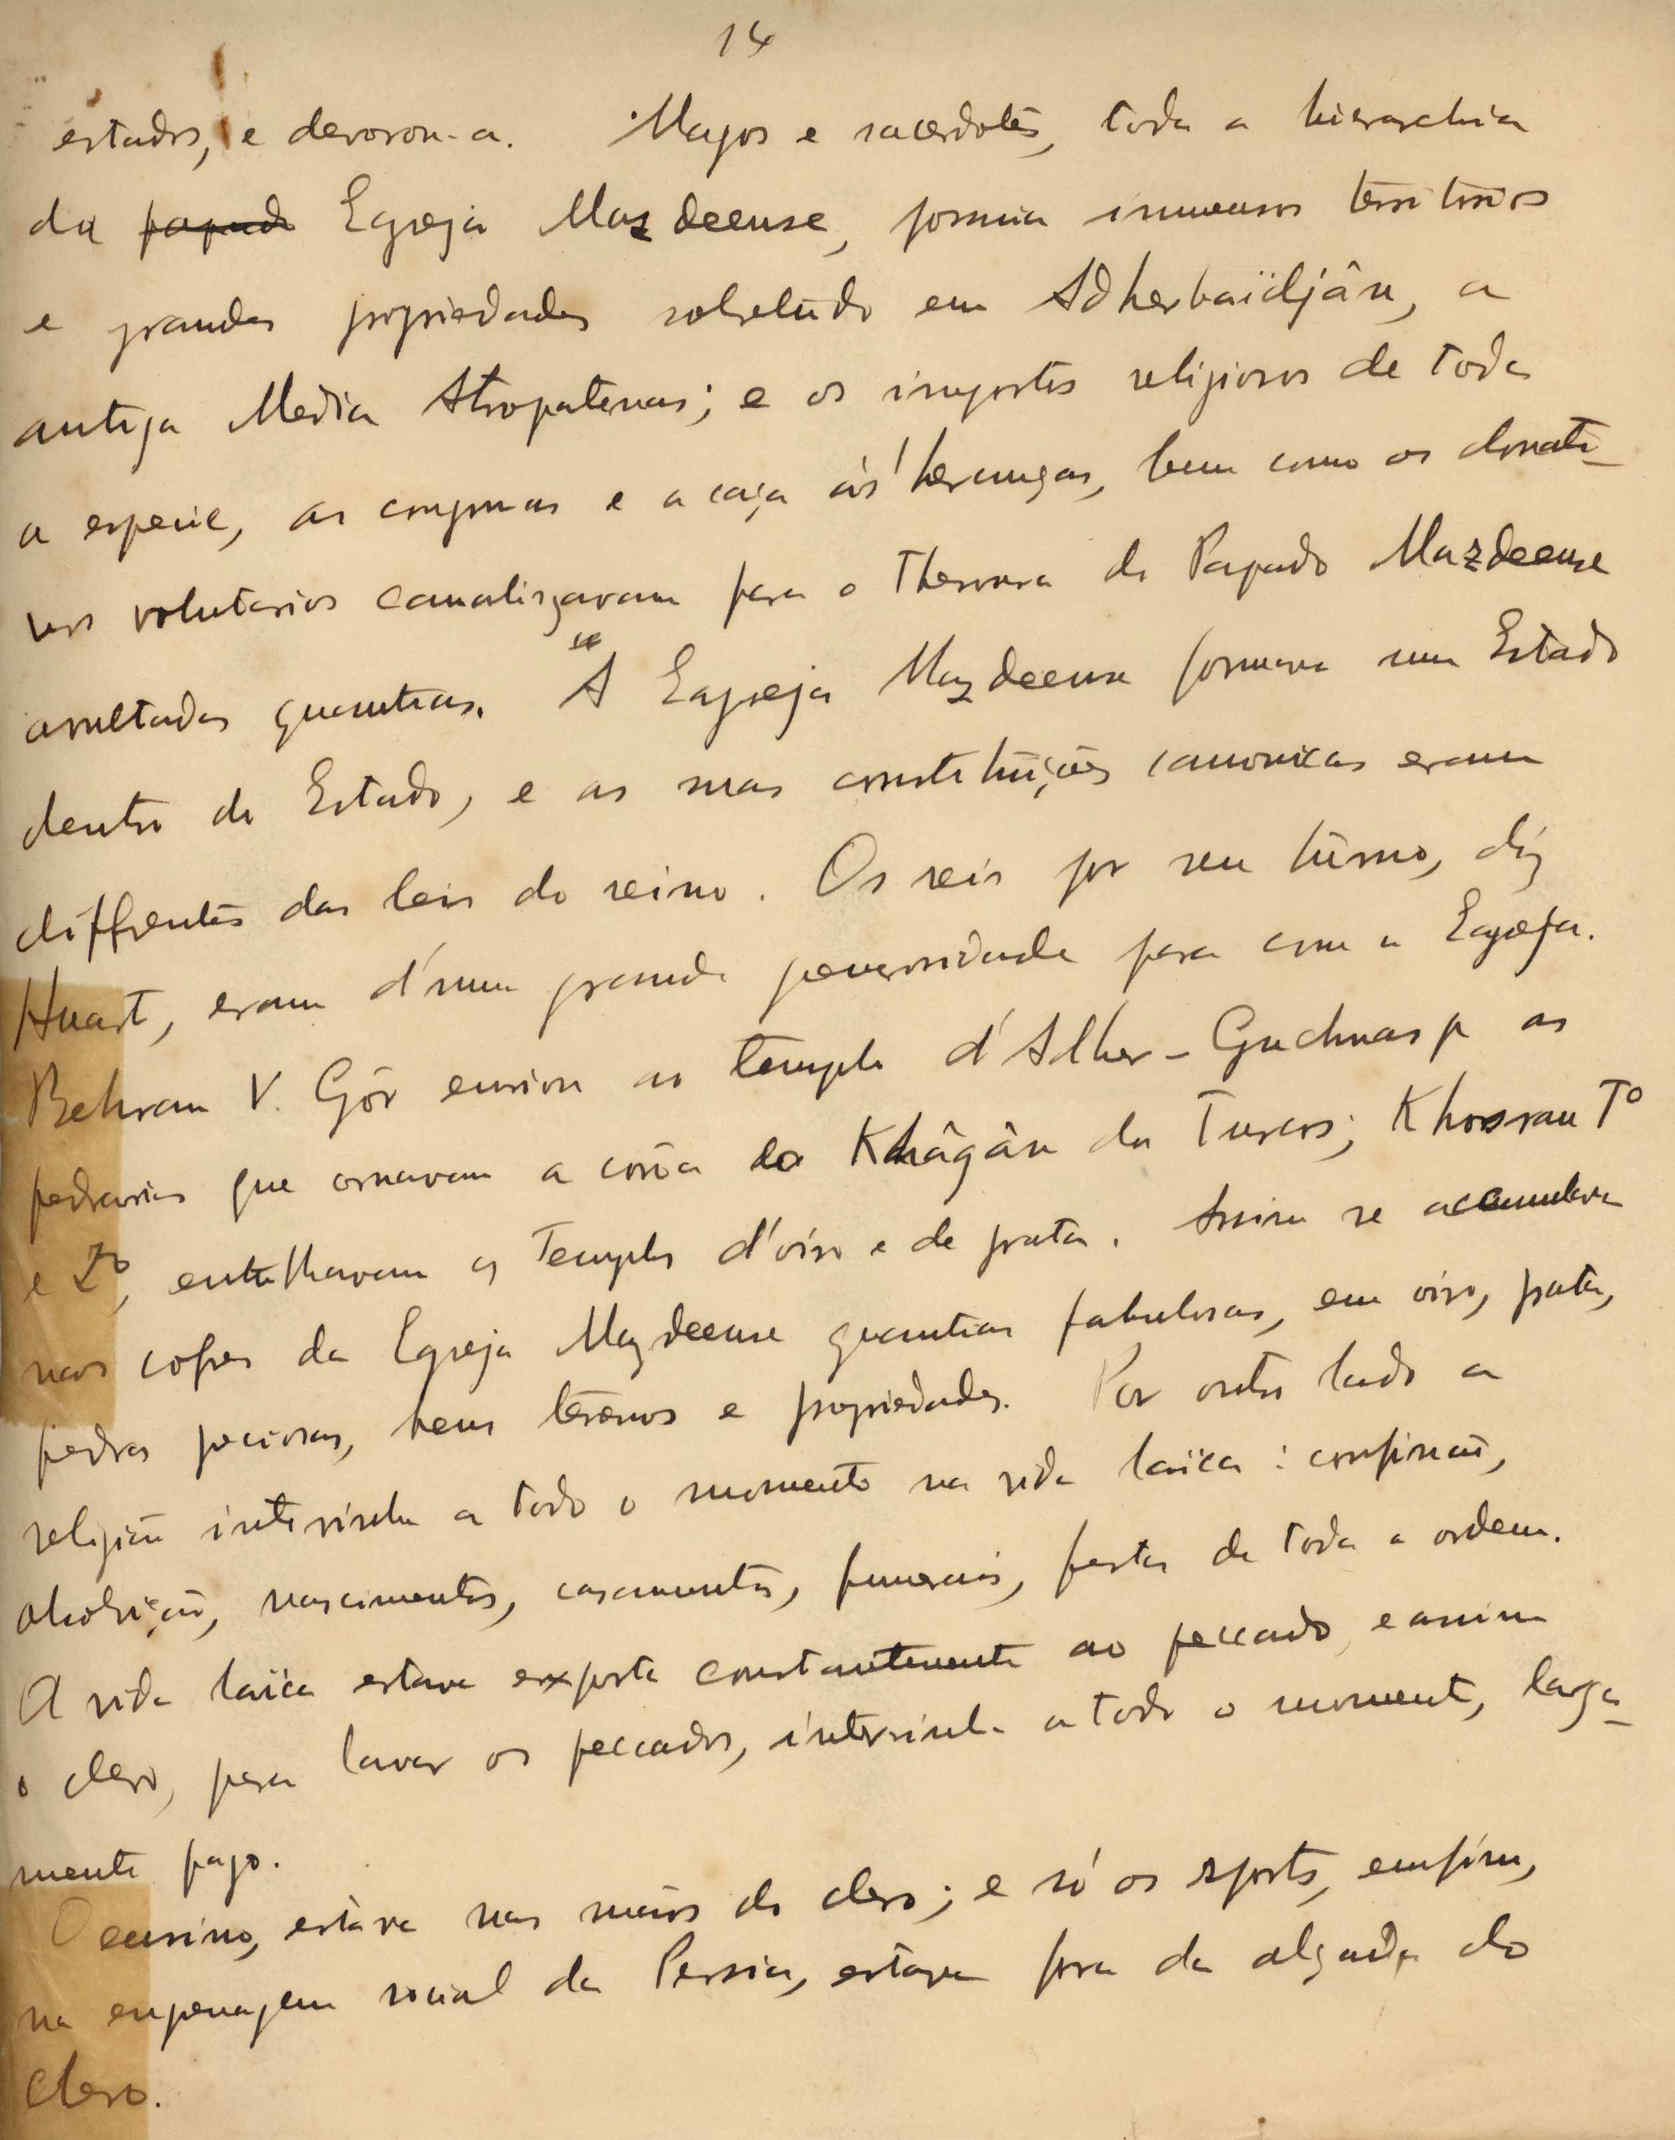 14
estados, e devorou-a. Magos e sacerdotes, toda a hierarchia
da papado Egreja Mazdeense, possuia immensos territorios
e grandes propriedades sobretudo em Adherbaïdjân, a
antiga Media Atropatenas; e os impostos religiosos de toda
a especie, as compras e a caça ás heranças, bem como os donati-
vos volutarios canalizavam para o Thesouro do Papado Mazdeense
avultadas quantias. A Egreja Mazdeense formava um Estado
dentro do Estado, e as suas constituições canonicas eram
diffrentes das leis do reino. Os reis por seu turno, diz
Huart, eram d'uma grande generosidade para com a Egreja.
Behram V. Gôr enviou ao templo d'Adher-Guchnasp as
pedrarias que ornavam a corôa do Khâgân dos Turcos; Khosrau 1º
e 2º, entulhavam os Templos d'oiro e de prata. Assim se accumulava
nos cofres da Egreja Mazdeense quantias fabulosas, em oiro, prata,
pedras preciosas, bens terrenos e propriedades. Por outro lado a
religião intervinha a todo o momento na vida laïca: confissão,
absolvição, nascimentos, casamentos, funerais, festas de toda a ordem.
A vida laïca estava exposta constantemente ao peccado, e assim
o clero, para lavar os peccados, intervinha a todo o momento, larga-
mente pago.
O ensino, estava nas mãos do clero; e só os sports, emfim,
na engrenagem social da Persia, estava fora da alçada do
Clero.